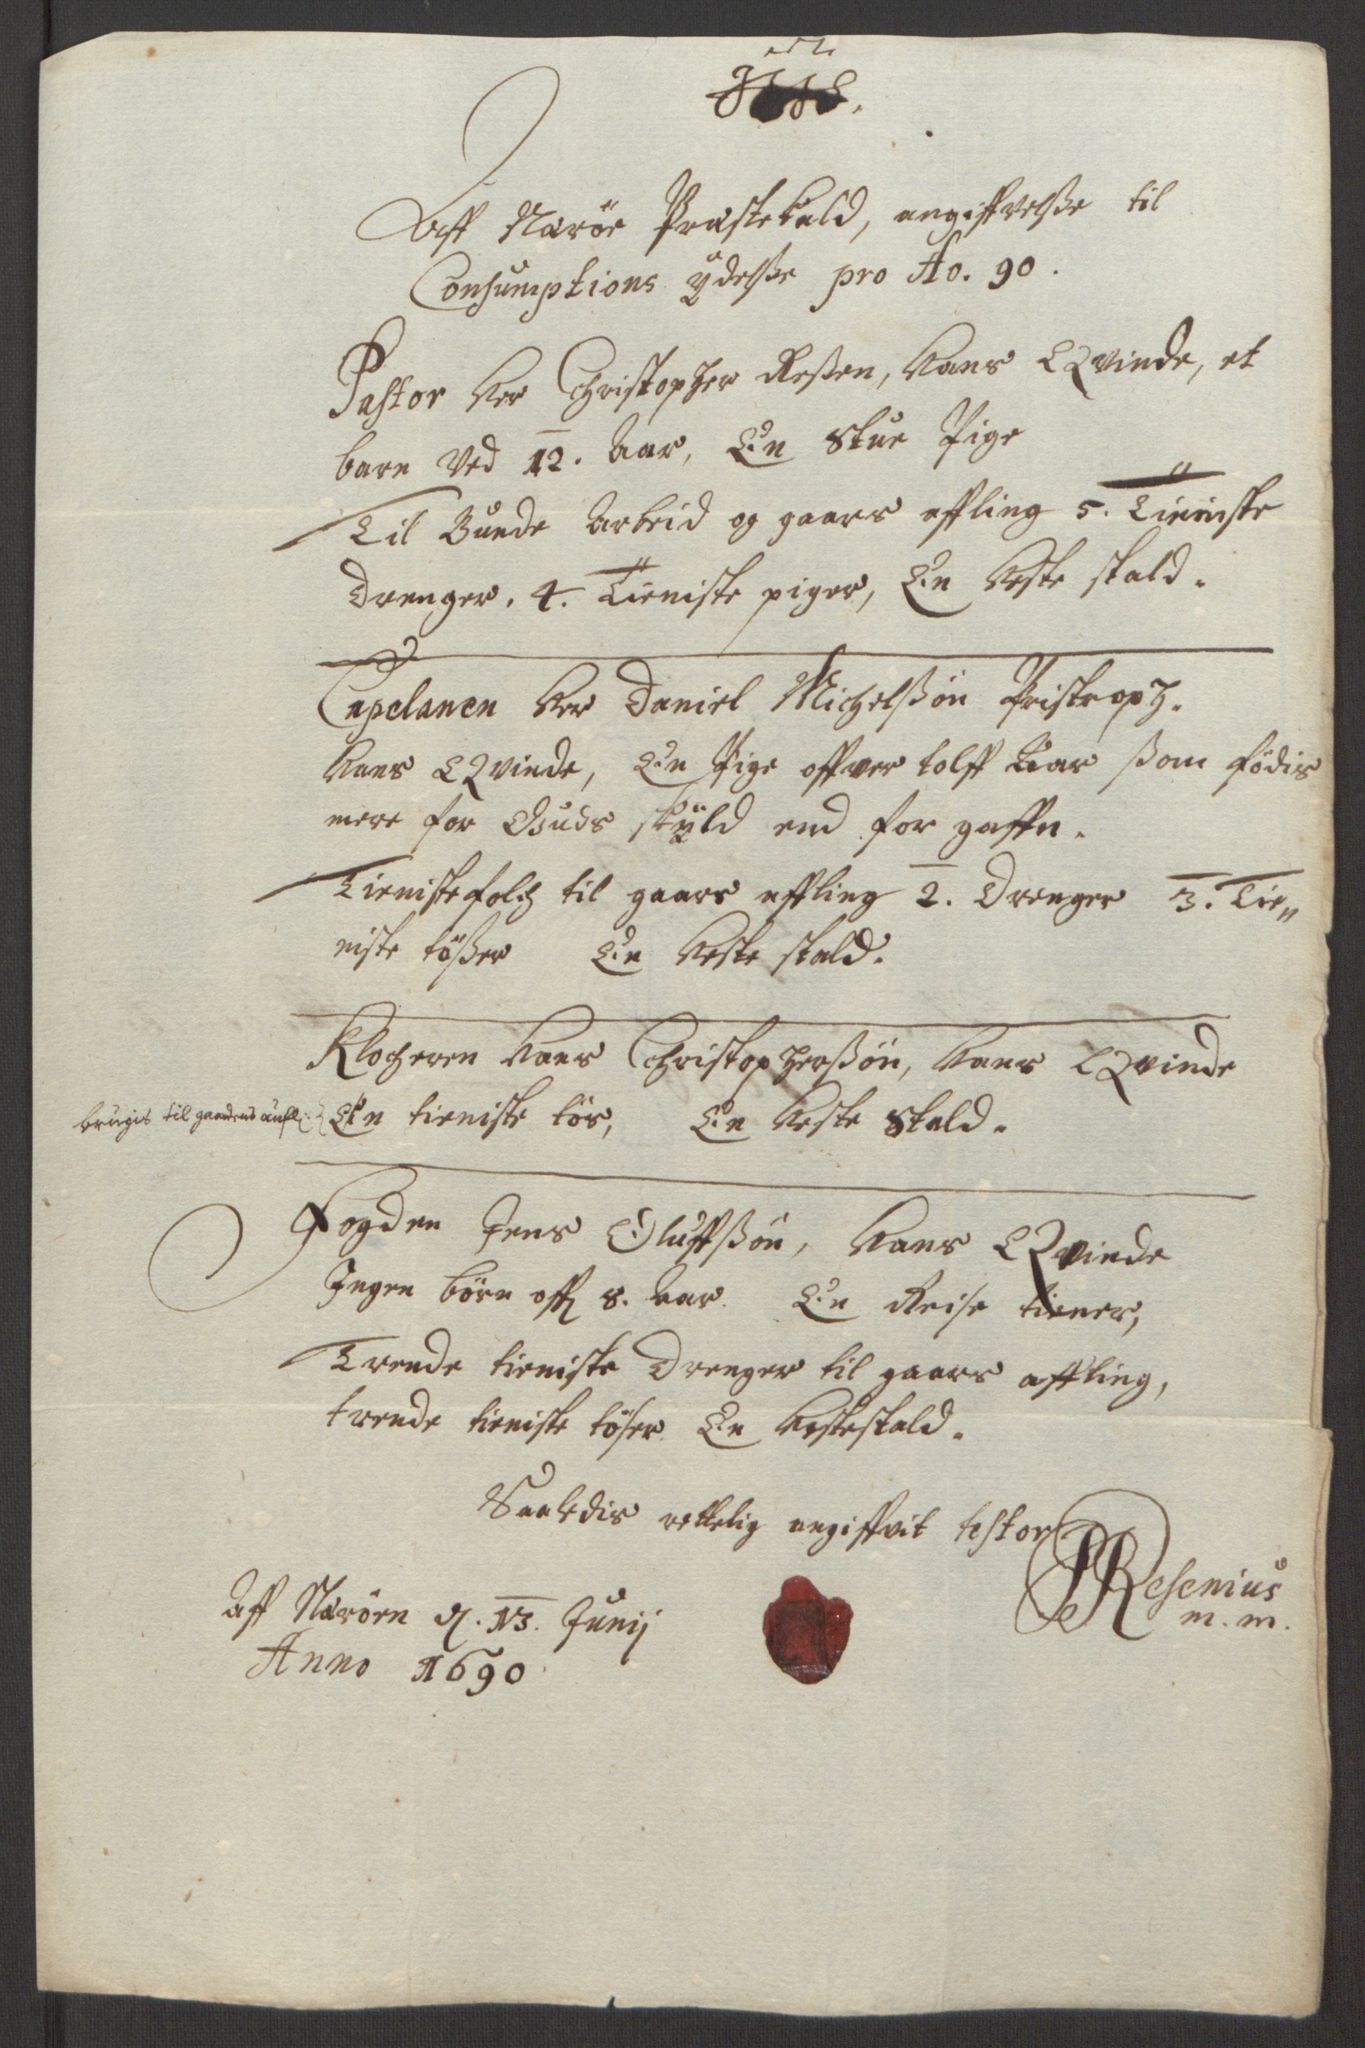 Aff Nærøe Præstekald, angiffvelsse til
Consumptions ÿdelsse pro Ao. 90.
Pastor Her Christopher Ressen, Hans Qvinde, et
barn ved 12. Aar, En Stue Pige
Til Bunde Arbeid og gaars affling 5. Tieniste
Drenger, 4. Tieniste piger, En Heste stald.
Capelanen Her Daniel Michelssøn Pristroph.
Hans Qvinde, En Pige offver tolff Aar ssom fødis
mere for Guds skÿld end for gaffn.
Tienistefolch til gaars affling 2. Drenger 3. Tie„
niste tøsser En Heste stald.
Klocheren Hans Christopherssøn, Hans Qvinde
brugis til gaardens aufl: En tieniste tøs, En Heste Stald.
Fogden Jens Oluffssøn, Hans Qvinde
Ingen børn off 8. Aar. En Reise tiener,
Trende tieniste Drenger til gaars affling,
trende tieniste tøser En Hestestald.
Saaledis rettelig angiffvit testor
Resenius
m. m.
Aff Nærøen d. 13. Junij
Anno 1690